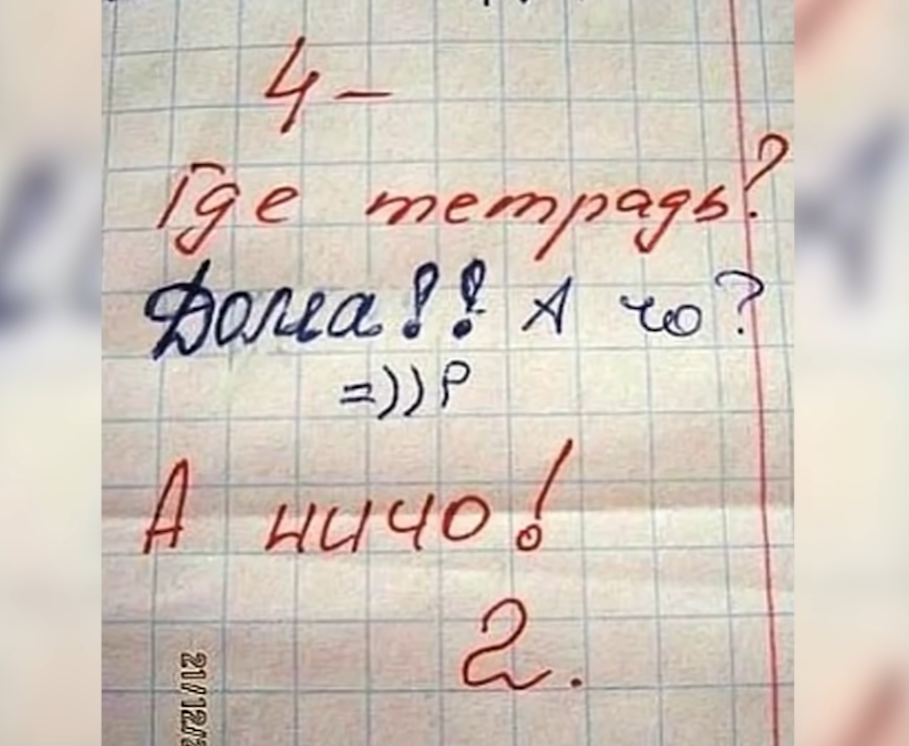 4 –
Где тетрадь?
Дома!! А чо?
=)) P
А ничо!
2.
21/12/